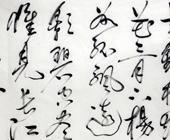 花三月下揚
州孤帆遠
影碧空盡
惟見長江